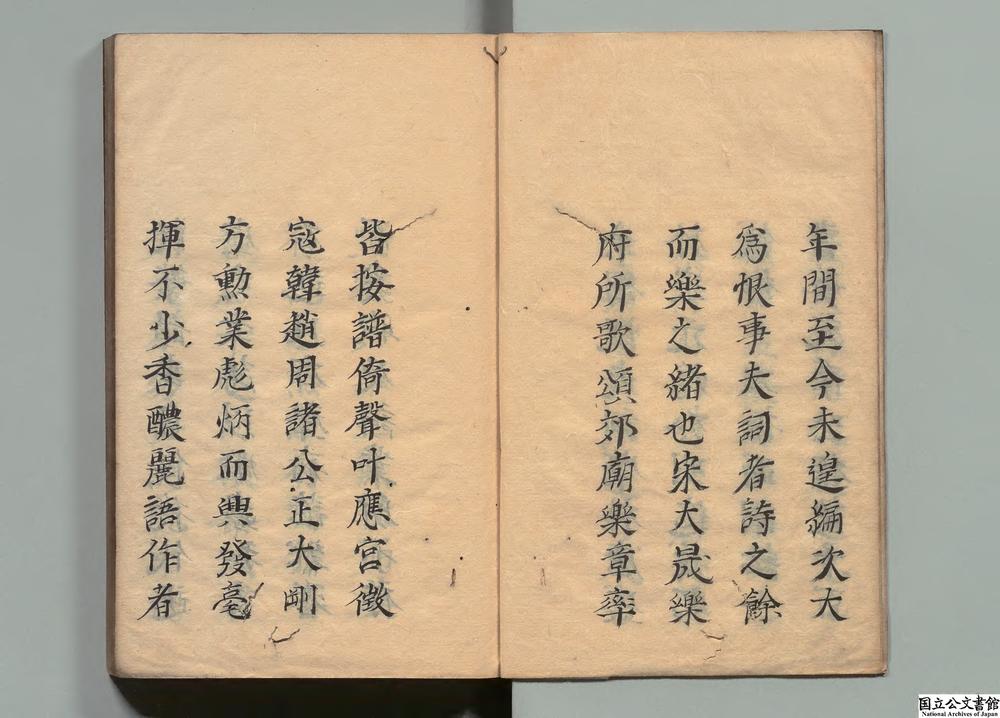 年間至今未遑編次大
爲恨事夫詞者詩之餘
而樂之緒也宋大晟樂
府所歌頌郊廟樂章率
皆按譜倚聲叶應宫徵
寇韓趙周諸公正大剛
方勲業彪炳而興發毫
揮不少香醲麗語作者
国立公文書館
National Archives of Japan